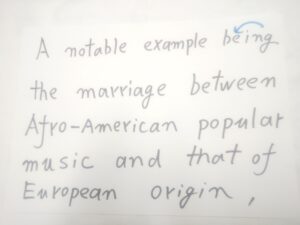 A notable example being
the marriage between
Afro-American popular
music and that of
European origin,